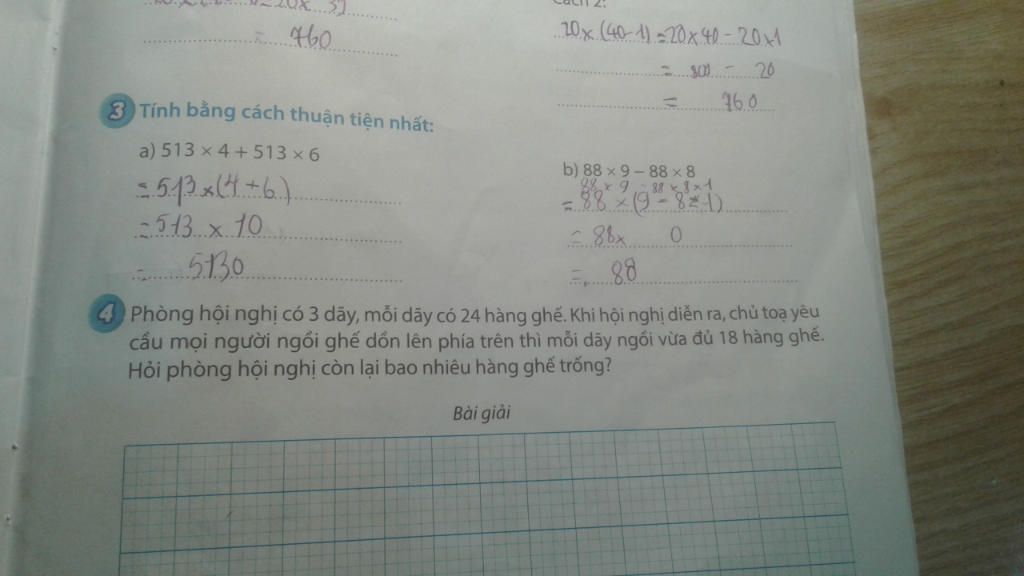 = 20 x 39
= 760
Cách 2:
20 x (40-1) = 20 x 40 - 20 x 1
= 800 - 20
= 760
3 Tính bằng cách thuận tiện nhất:
a) 513 × 4 + 513 × 6
= 513 x (4 + 6)
= 513 x 10
= 5130
b) 88 × 9 – 88 × 8
88 x 9 - 88 x 8 x 1
= 88 x (9 - 8 = 1)
= 88 x 0
= 88
4 Phòng hội nghị có 3 dãy, mỗi dãy có 24 hàng ghế. Khi hội nghị diễn ra, chủ toạ yêu
cầu mọi người ngồi ghế dồn lên phía trên thì mỗi dãy ngồi vừa đủ 18 hàng ghế.
Hỏi phòng hội nghị còn lại bao nhiêu hàng ghế trống?
Bài giải